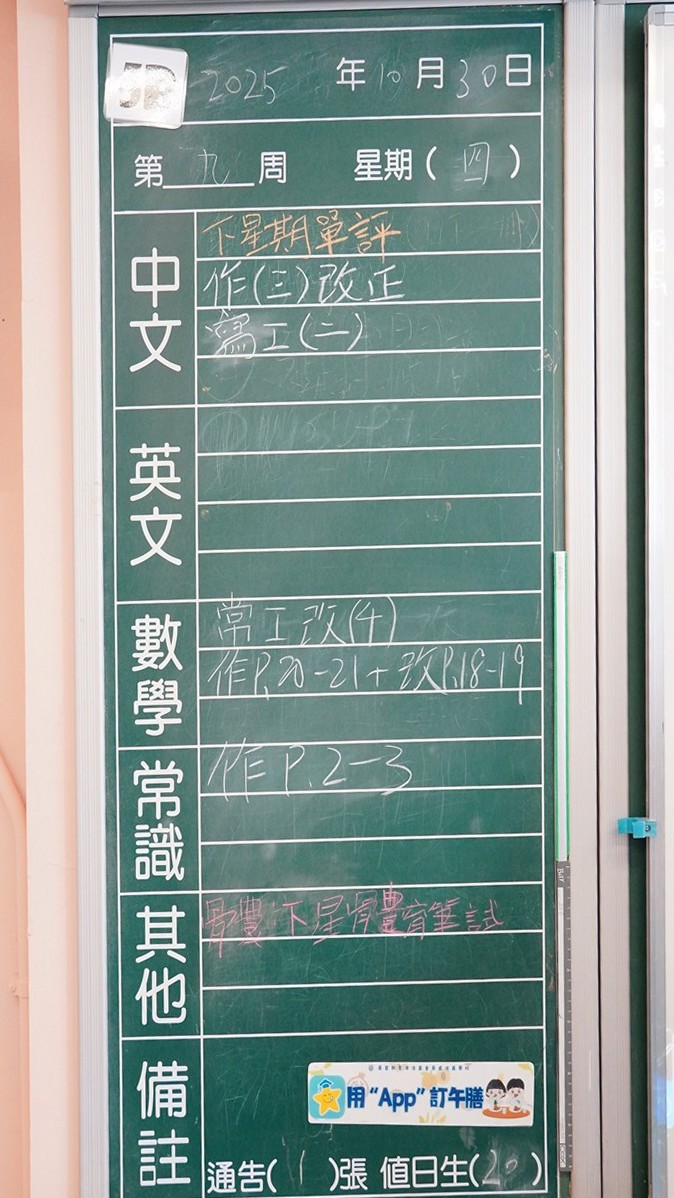 5B
2025 年 10 月 30 日
第 九 周 星期 ( 四 )
中文
下星期單評
作(三)改正
寫工(二)
英文
數學
常工改(4)
作P.20-21+改P.18-19
常識
作 P.2-3
其他
下星 體育筆試
備註
用“App”訂午膳
通告( 1 )張 值日生( 20 )